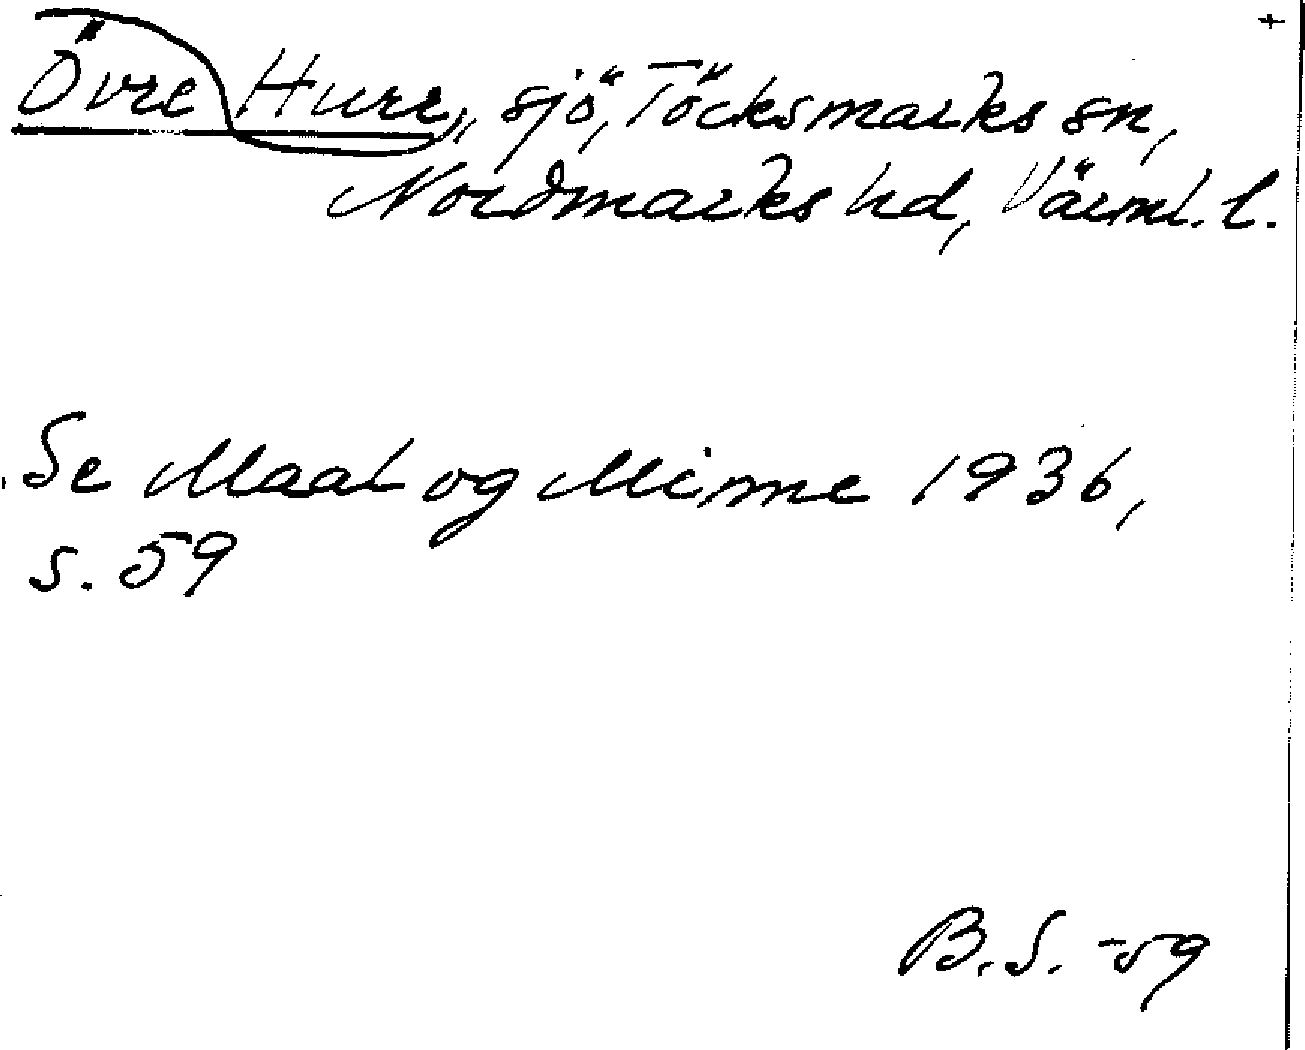 +
Övre Hure, sjö, Töcksmarks sn,
Nordmarks hd, Värml. l.
Se Maal og Minne 1936,
s. 59
B.S. -59